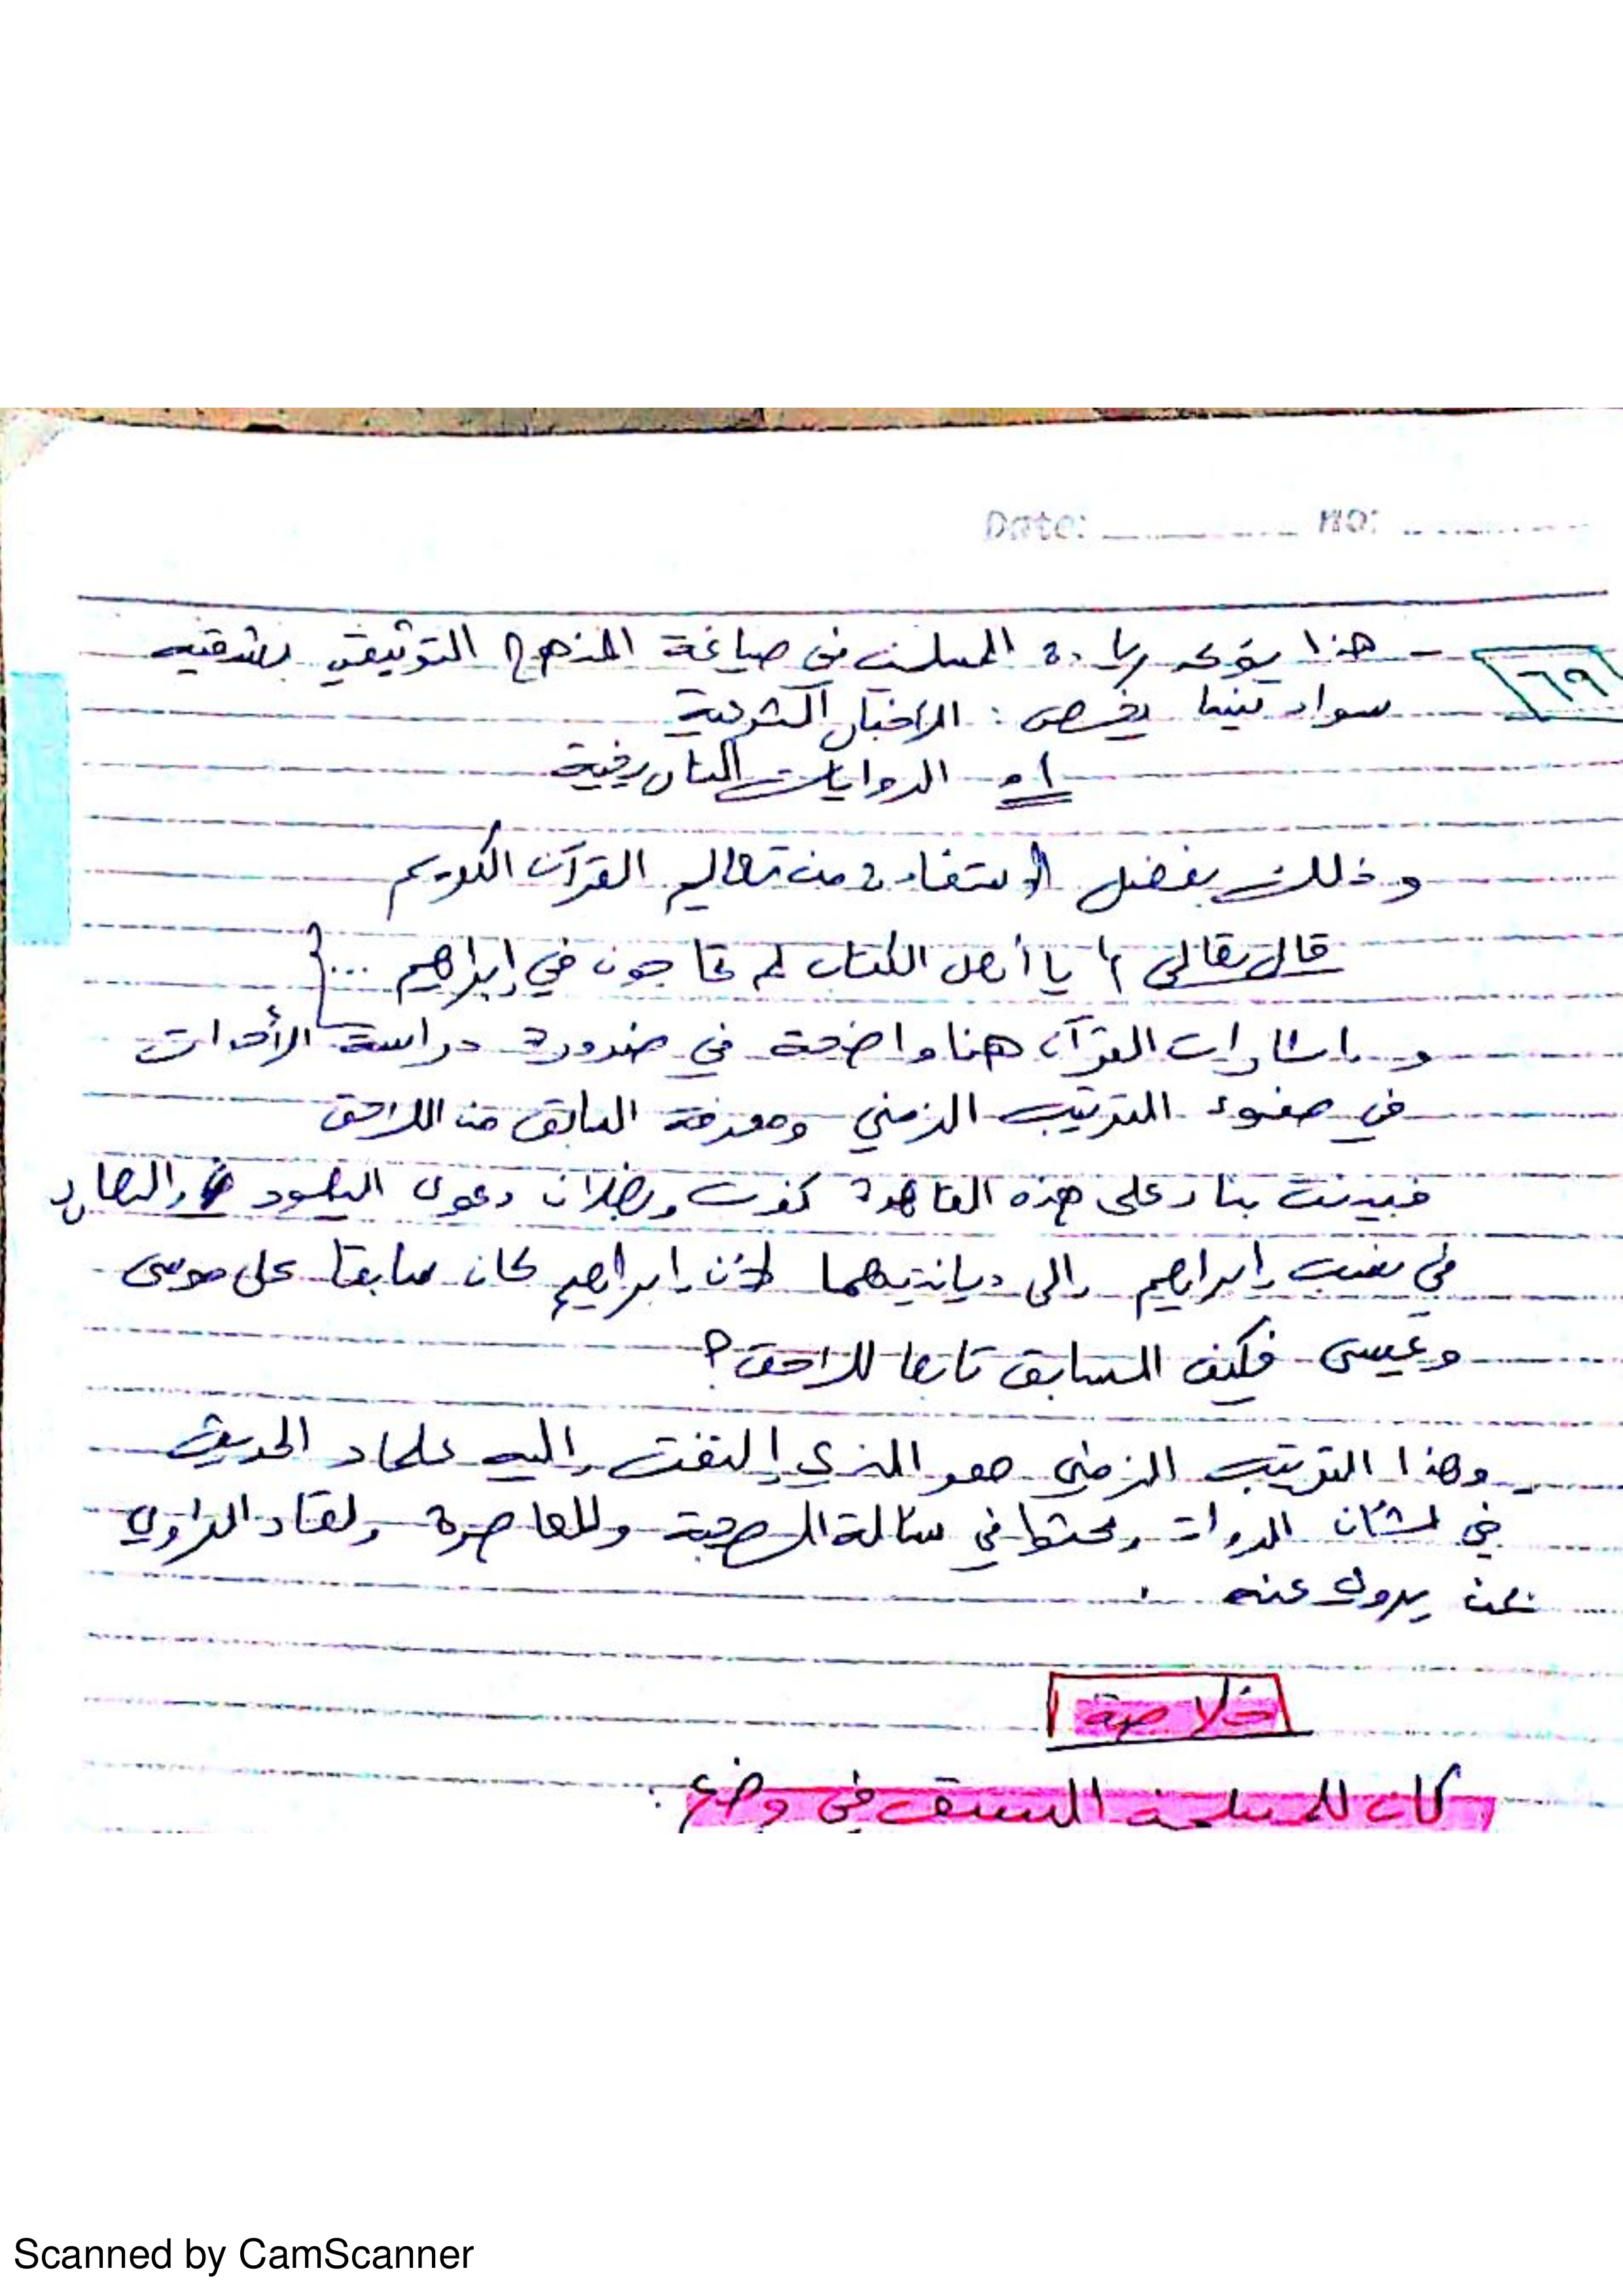 Date: NO:
٦٩
- هذا يؤكد ريادة المسلمين في صياغة المنهج التوثيقي بشقيه
سواء فيما يخص : الأخبار الشرعية
أو الروايات التاريخية
وذلك بفضل الاستفادة من تعاليم القرآن الكريم
قال تعالى { يا أهل الكتاب لم تحاجون في إبراهيم ... }
و إشارات القرآن هنا واضحة في ضرورة دراسة الأحداث
في ضوء الترتيب الزمني ومعرفة السابق من اللاحق
فبينت بناء على هذه القاعدة كذب وبطلان دعوى اليهود والنصارى
في نسب إبراهيم إلى ديانتيهما لأن إبراهيم كان سابقا على موسى
وعيسى فكيف السابق تابعا للاحق ؟
- وهذا الترتيب الزمني هو الذي إلتفت إليه علماء الحديث
في شأن الروات وبحثوا في مسألة الصحبة والمعاصرة ولقاء الراوي
بمن يروي عنه .
خلاصة
كان للمسلمين السبق في وضع :
Scanned by CamScanner